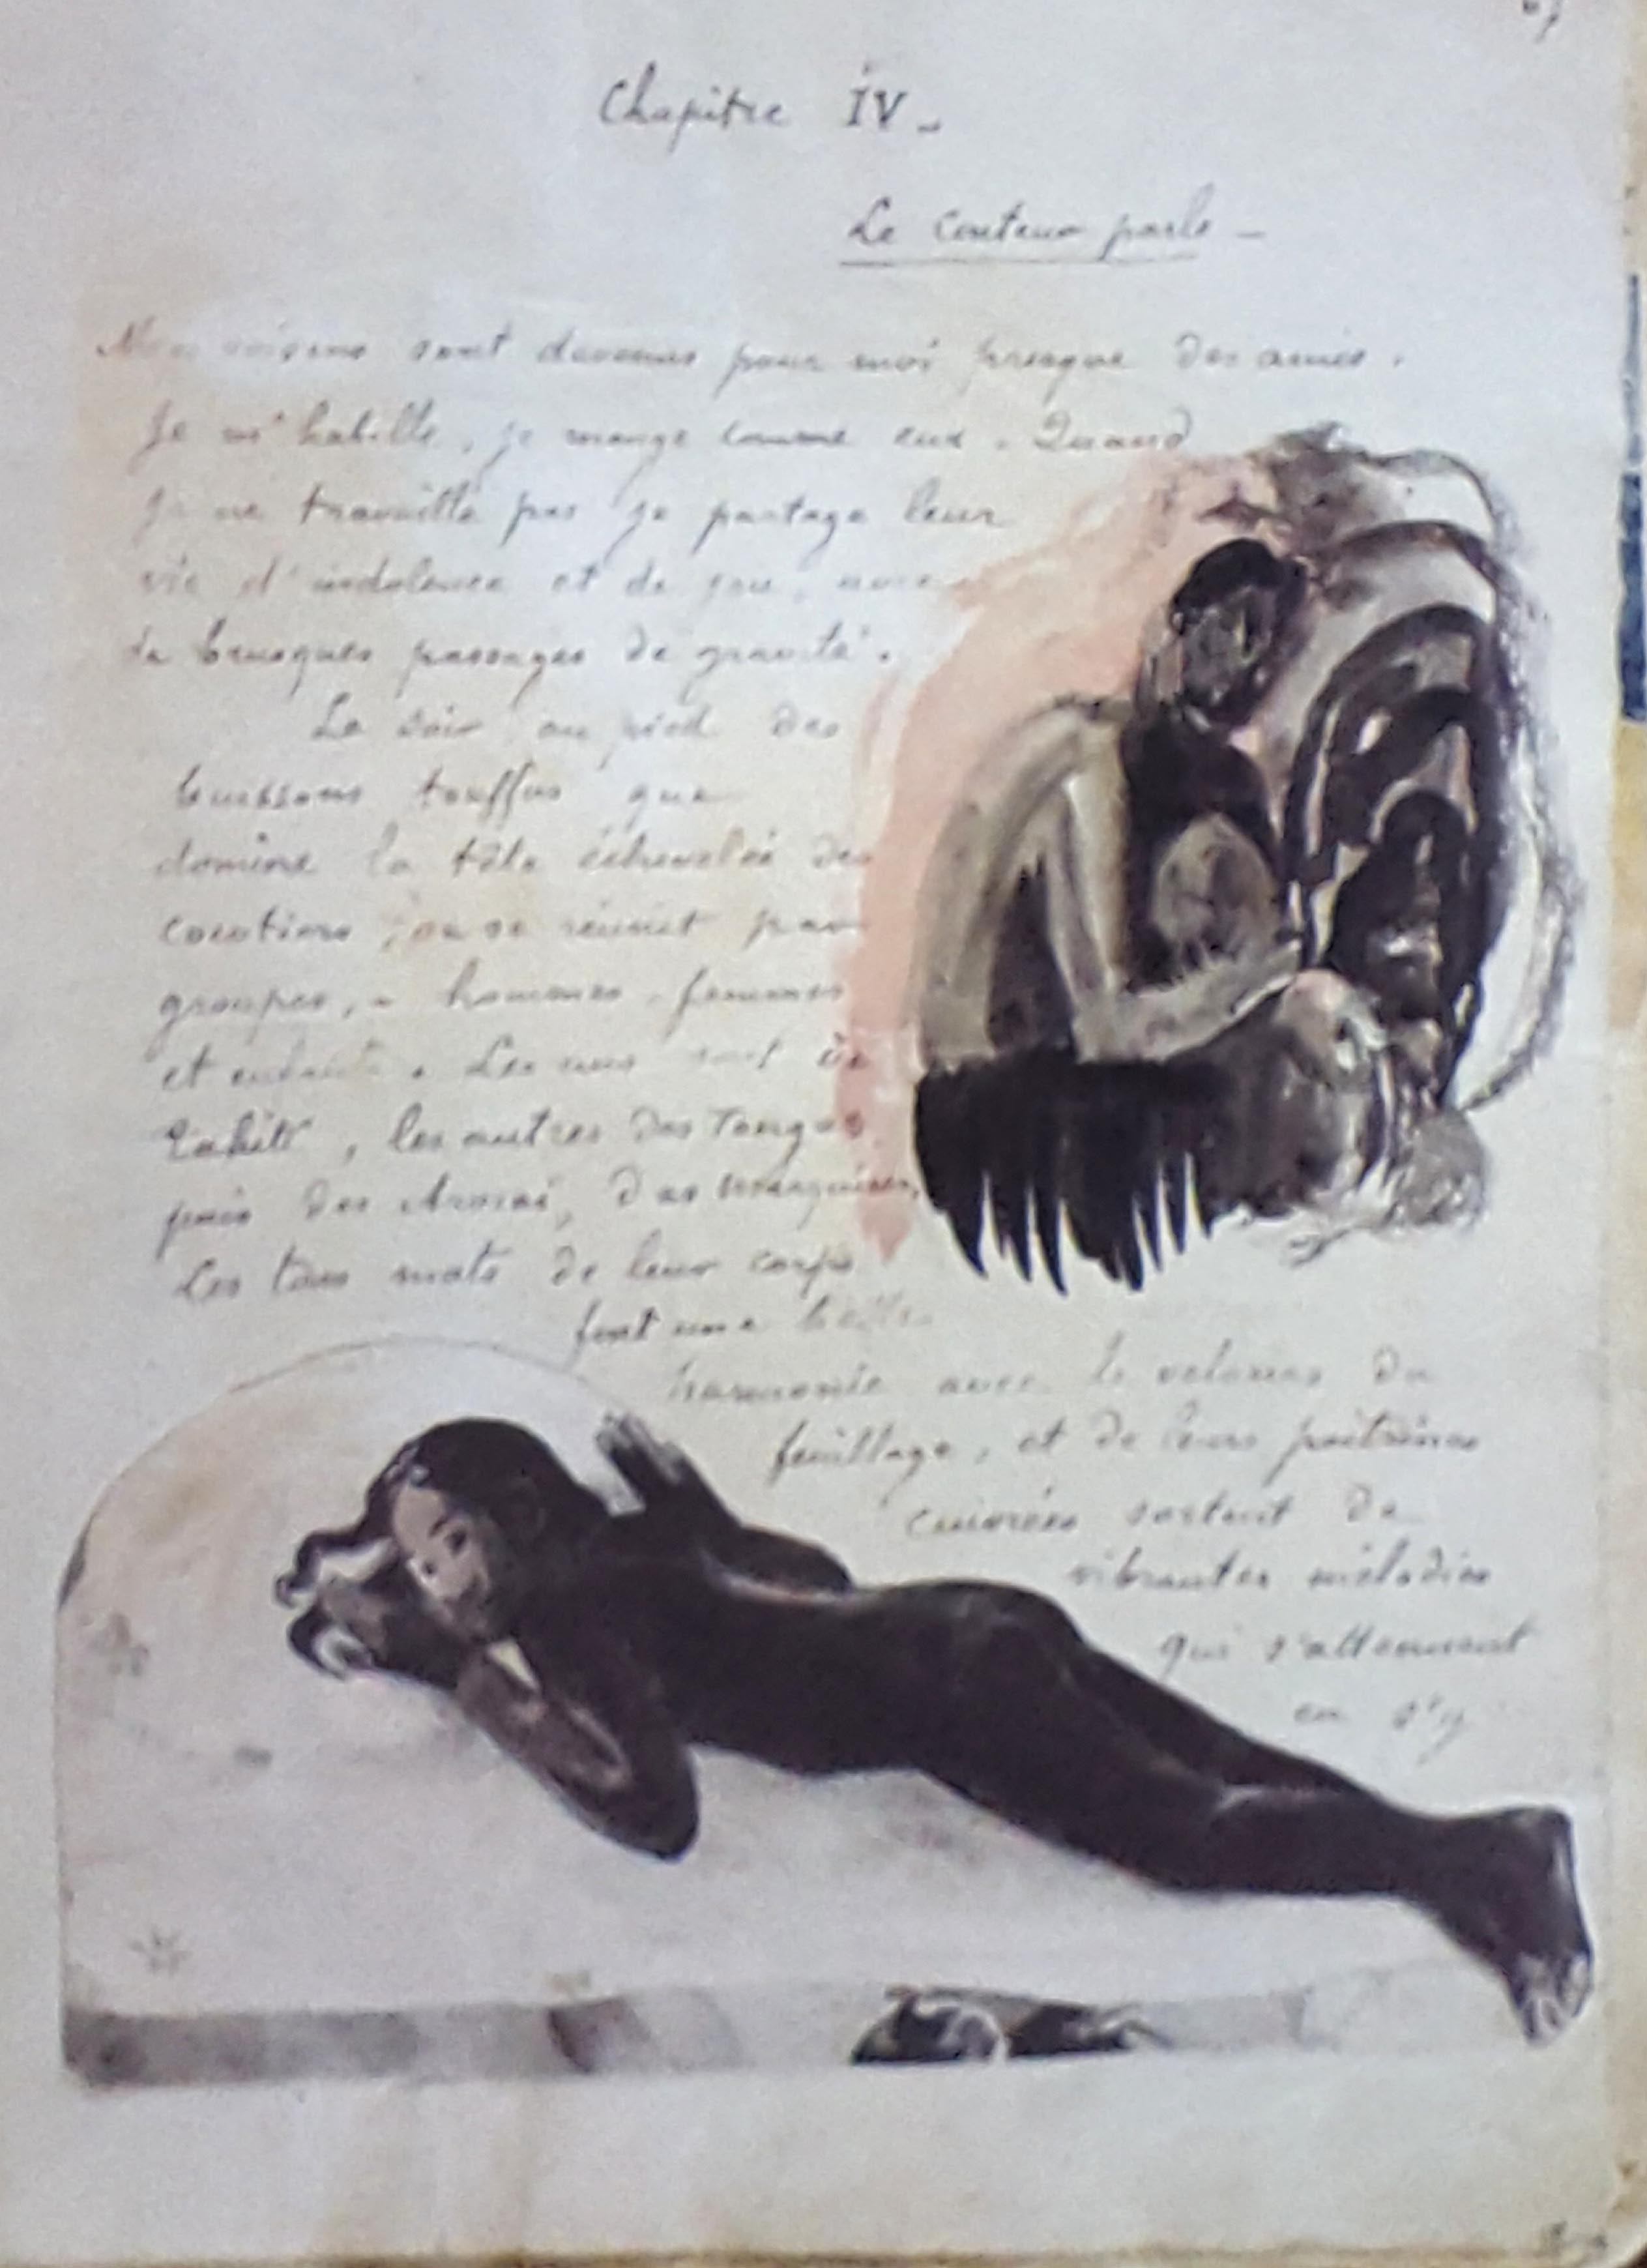 Chapitre IV_
Le Conteur parle _
Mes voisins sont devenus pour moi presque des amis.
Je m'habille, je mange comme eux. Quand
je ne travaille pas je partage leur
vie d'indolence et de joie, avec
de brusques passages de gravité.
Le soir au pied des
buissons touffus que
domine la tête échevelée des
cocotiers, on se réunit par
groupes, _ hommes, femmes
et enfants. Les uns sont de
Tahiti, les autres des Tongas
puis des Arorai, des Marquises.
Les tons mats de leur corps
font une belle
harmonie avec le velours du
feuillage, et de leurs poitrines
cuivrées sortent de
vibrantes mélodies
qui s'atténuent
en s'y